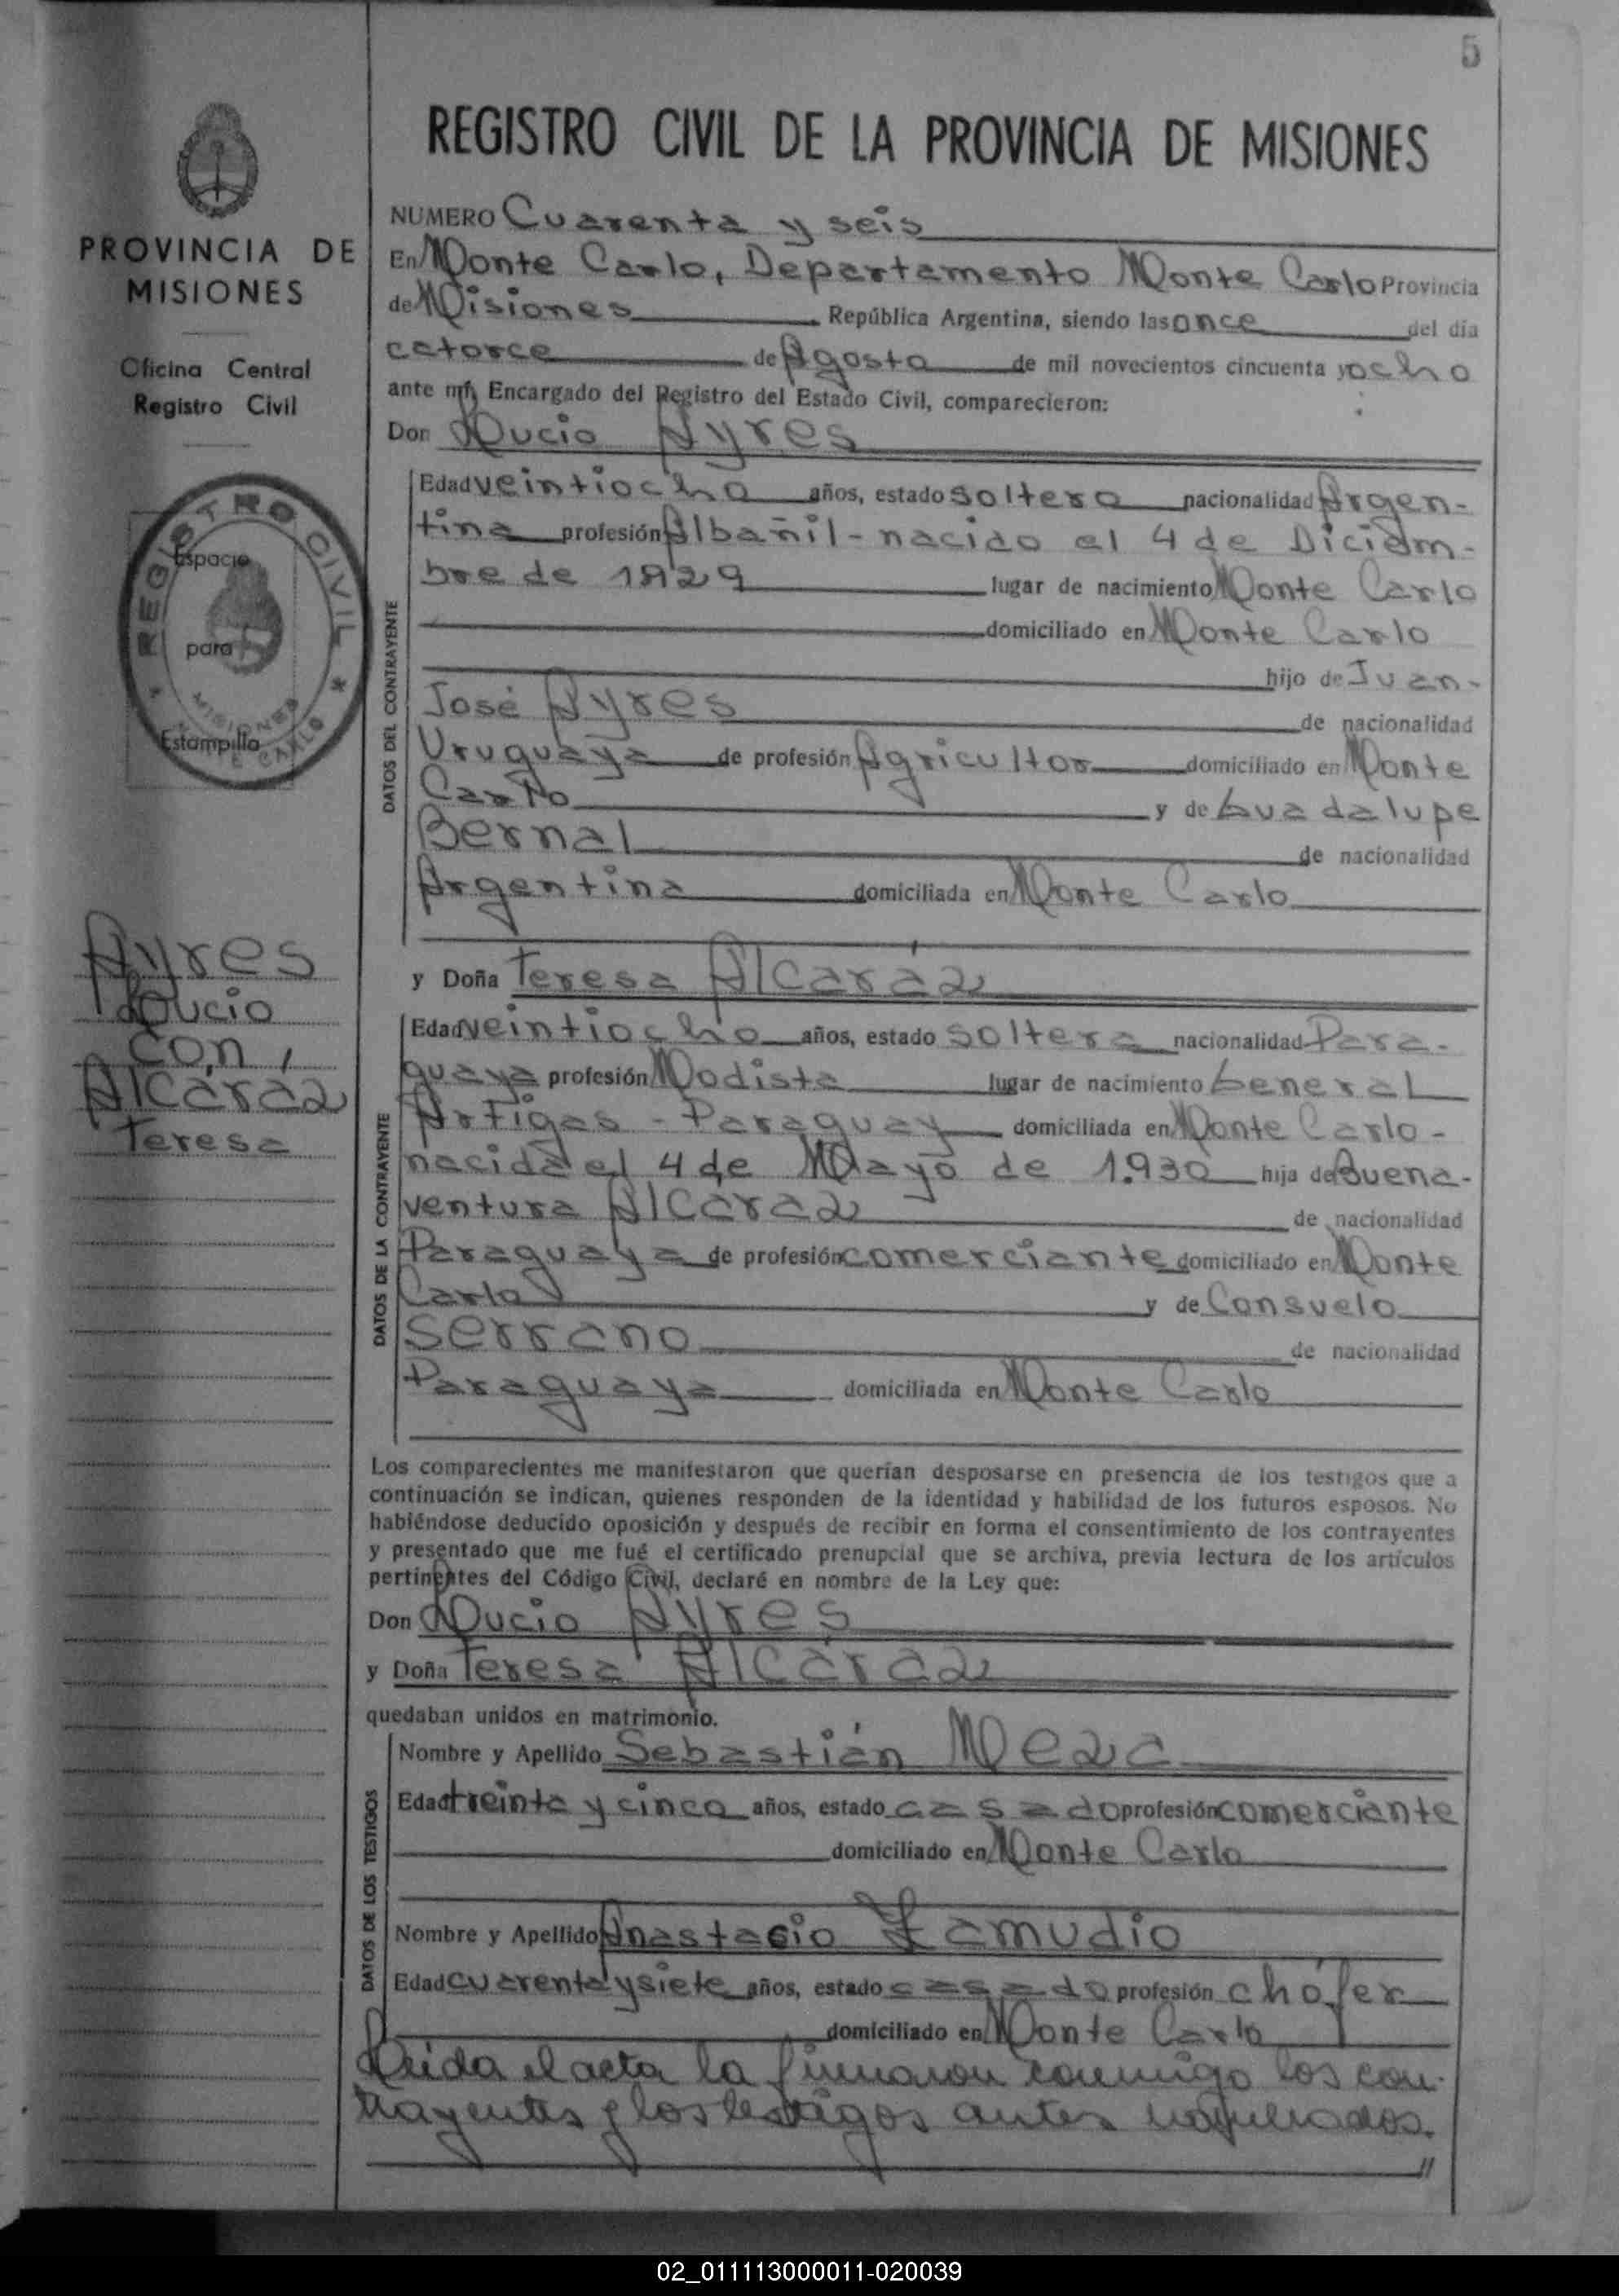 5
REGISTRO CIVIL DE LA PROVINCIA DE MISIONES
PROVINCIA DE
MISIONES
Oficina Central
Registro Civil
REGISTRO CIVIL
Espacio
para
Estampilla
MISIONES
MONTE CARLO
Ayres
Lucio
con
Alcaráz
Teresa
NUMERO Cuarenta y seis
En Monte Carlo, Departamento Monte Carlo Provincia
de Misiones República Argentina, siendo las once del día
catorce de Agosto de mil novecientos cincuenta y ocho
ante mí, Encargado del Registro del Estado Civil, comparecieron:
Don Lucio Ayres
DATOS DEL CONTRAYENTE
Edad veintiocho años, estado soltero nacionalidad Argen-
tina profesión Albañil - nacido el 4 de Diciem-
bre de 1929 lugar de nacimiento Monte Carlo
domiciliado en Monte Carlo
hijo de Juan-
José Ayres de nacionalidad
Uruguaya de profesión Agricultor domiciliado en Monte
Carlo y de Guadalupe
Bernal de nacionalidad
Argentina domiciliada en Monte Carlo
y Doña Teresa Alcaráz
DATOS DE LA CONTRAYENTE
Edad veintiocho años, estado soltera nacionalidad Para-
guaya profesión Modista lugar de nacimiento General
Artigas - Paraguay domiciliada en Monte Carlo -
nacida el 4 de Mayo de 1.930 hija de Buena-
ventura Alcaraz de nacionalidad
Paraguaya de profesión comerciante domiciliado en Monte
Carlo y de Consuelo
Serrano de nacionalidad
Paraguaya domiciliada en Monte Carlo
Los comparecientes me manifestaron que querían desposarse en presencia de los testigos que a
continuación se indican, quienes responden de la identidad y habilidad de los futuros esposos. No
habiéndose deducido oposición y después de recibir en forma el consentimiento de los contrayentes
y presentado que me fué el certificado prenupcial que se archiva, previa lectura de los artículos
pertinentes del Código Civil, declaré en nombre de la Ley que:
Don Lucio Ayres
y Doña Teresa Alcaráz
quedaban unidos en matrimonio.
DATOS DE LOS TESTIGOS
Nombre y Apellido Sebastián Meza
Edad treinta y cinco años, estado casado profesión comerciante
domiciliado en Monte Carlo
Nombre y Apellido Anastacio Zamudio
Edad cuarenta y siete años, estado casado profesión chófer
domiciliado en Monte Carlo
Leída el acta la firmaron conmigo los con-
trayentes y los testigos antes nombrados.
02_011113000011-020039